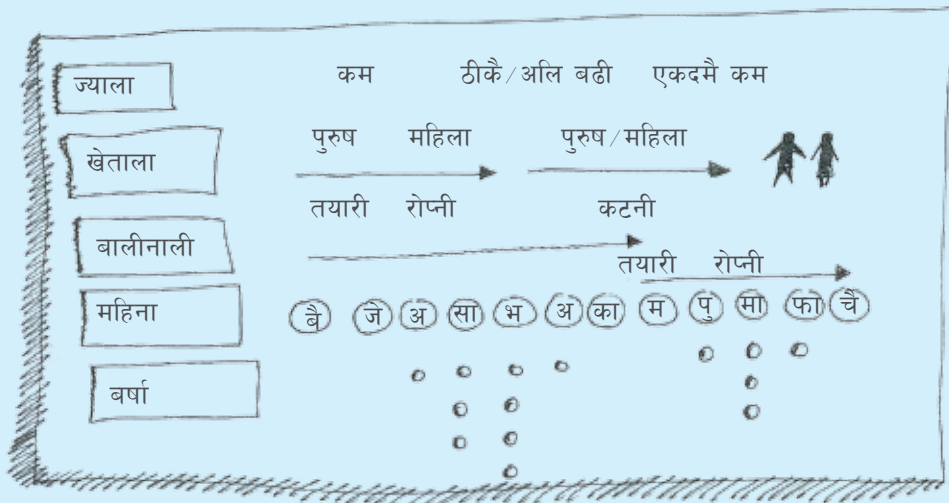 ज्याला कम ठीकै/अलि बढी एकदमै कम
खेताला पुरुष महिला पुरुष/महिला
तयारी रोप्नी कटनी
बालीनाली तयारी रोप्नी
महिना बै जे अ सा भ अ का म पु मा फा चै
बर्षा